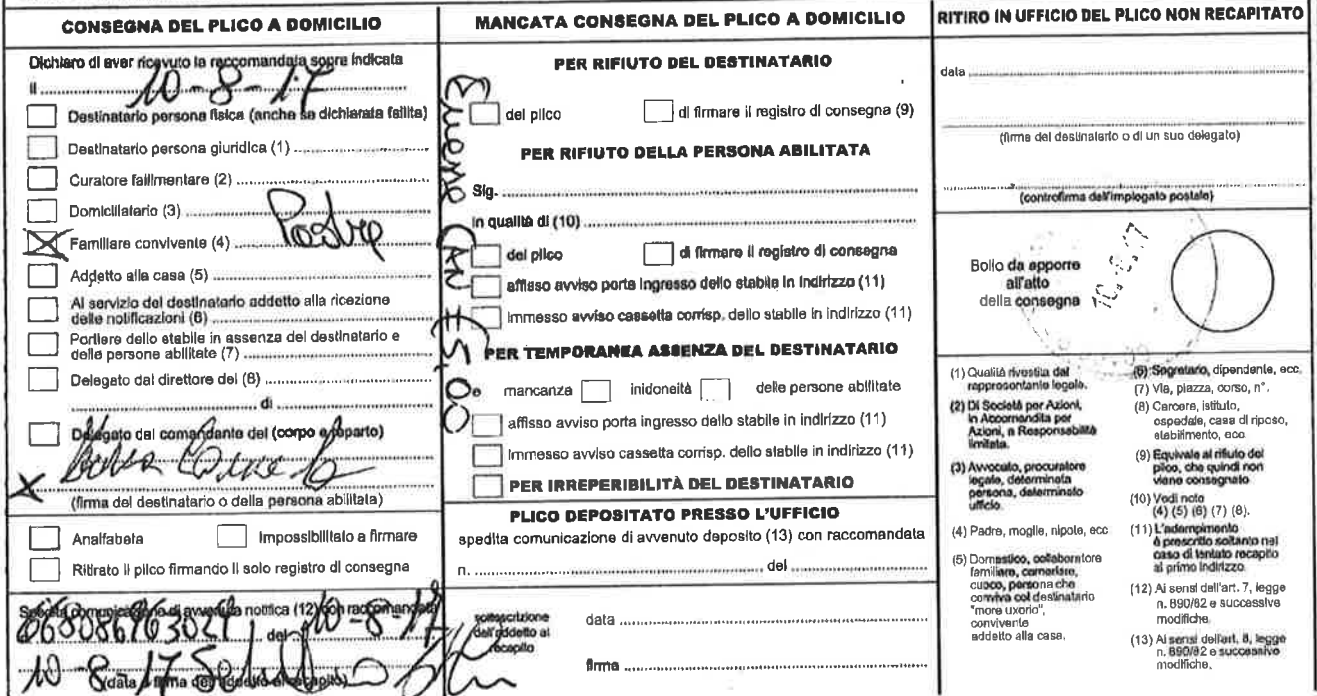 CONSEGNA DEL PLICO A DOMICILIO
Dichiaro di aver ricevuto la raccomandata sopra indicata
il 10-8-17
Destinatario persona fisica (anche se dichiarata fallita)
Destinatario persona giuridica (1)
Curatore fallimentare (2)
Domiciliatario (3)
Familiare convivente (4)
Addetto alla casa (5)
Al servizio del destinatario addetto alla ricezione
delle notificazioni (6)
Portiere dello stabile in assenza del destinatario e
delle persone abilitate (7)
Delegato dal direttore del (8)
di
Delegato dal comandante del (corpo e reparto)
X
(firma del destinatario o della persona abilitata)
Analfabeta Impossibilitato a firmare
Ritirato il plico firmando il solo registro di consegna
Spedita comunicazione di avvenuta notifica (12) con raccomandata
del 10-8-17
10-8-17
(data e firma dell'addetto al recapito)
MANCATA CONSEGNA DEL PLICO A DOMICILIO
PER RIFIUTO DEL DESTINATARIO
del plico di firmare il registro di consegna (9)
PER RIFIUTO DELLA PERSONA ABILITATA
Sig.
in qualità di (10)
del plico di firmare il registro di consegna
affisso avviso porta ingresso dello stabile in indirizzo (11)
immesso avviso cassetta corrisp. dello stabile in indirizzo (11)
PER TEMPORANEA ASSENZA DEL DESTINATARIO
mancanza inidoneità delle persone abilitate
affisso avviso porta ingresso dello stabile in indirizzo (11)
immesso avviso cassetta corrisp. dello stabile in indirizzo (11)
PER IRREPERIBILITÀ DEL DESTINATARIO
PLICO DEPOSITATO PRESSO L'UFFICIO
spedita comunicazione di avvenuto deposito (13) con raccomandata
n. del
sottoscrizione
dell'addetto al
recapito
data
firma
RITIRO IN UFFICIO DEL PLICO NON RECAPITATO
data
(firma del destinatario o di un suo delegato)
(controfirma dell'impiegato postale)
Bollo da apporre
all'atto
della consegna
(1) Qualità rivestita dal
rappresentante legale.
(2) Di Società per Azioni,
in Accomandita per
Azioni, a Responsabilità
limitata.
(3) Avvocato, procuratore
legale, determinata
persona, determinato
ufficio.
(4) Padre, moglie, nipote, ecc
(5) Domestico, collaboratore
familiare, cameriere,
cuoco, persona che
conviva col destinatario
"more uxorio",
convivente
addetto alla casa.
(6) Segretario, dipendente, ecc.
(7) Via, piazza, corso, n°.
(8) Carcere, istituto,
ospedale, casa di riposo,
stabilimento, ecc.
(9) Equivale al rifiuto del
plico, che quindi non
viene consegnato
(10) Vedi note
(4) (5) (6) (7) (8).
(11) L'adempimento
è prescritto soltanto nel
caso di tentato recapito
al primo indirizzo.
(12) Ai sensi dell'art. 7, legge
n. 890/82 e successive
modifiche.
(13) Ai sensi dell'art. 8, legge
n. 890/82 e successive
modifiche.